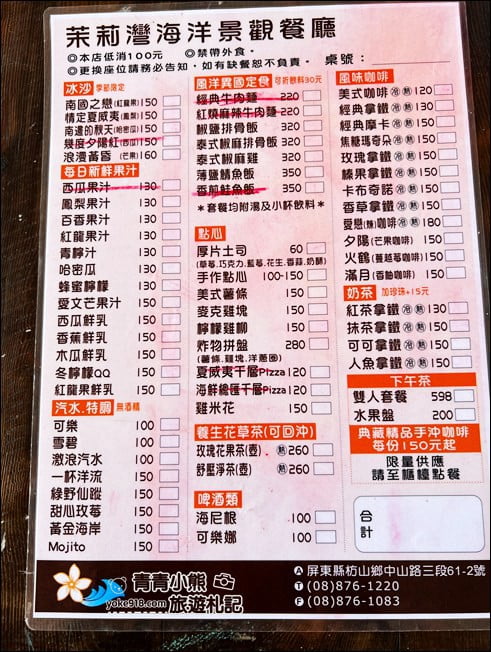 茉莉灣海洋景觀餐廳
◎本店低消100元 ◎禁帶外食。
◎更換座位請務必告知，如有缺餐恕不負責。 桌號：
冰沙 季節限定
南國之戀(紅龍果)150
情定夏威夷(鳳梨)150
南邊的秋天(哈密瓜)150
幾度夕陽紅(西瓜)150
浪漫黃昏(芒果)160
每日新鮮果汁
西瓜果汁 130
鳳梨果汁 130
百香果汁 130
紅龍果汁 130
青檸汁 130
哈密瓜 130
蜂蜜檸檬 130
愛文芒果汁 150
西瓜鮮乳 150
香蕉鮮乳 150
木瓜鮮乳 150
冬檸檬QQ 150
紅龍果鮮乳 150
汽水.特調 無酒精
可樂 100
雪碧 100
激浪汽水 100
一杯洋流 150
綠野仙蹤 150
甜心玫莓 150
黃金海岸 150
Mojito 150
風洋異國定食 可折飲料30元
經典牛肉麵 220
紅燒麻辣牛肉麵 220
椒鹽排骨飯 320
泰式椒麻排骨飯 320
泰式椒麻雞 320
薄鹽鯖魚飯 350
香煎鮭魚飯 350
＊套餐均附湯及小杯飲料＊
點心
厚片土司 60
(草莓.巧克力.藍莓.花生.香蒜.奶酥)
手作點心 100-150
美式薯條 150
麥克雞塊 150
檸檬雞柳 150
炸物拼盤 280
(薯條.雞塊.洋蔥圈)
夏威夷千層Pizza 120
海鮮總匯千層Pizza 120
雞米花 150
養生花草茶(可回沖)
玫瑰花果茶(壺) 熱 260
舒壓淨茶(壺) 熱 260
啤酒類
海尼根 100
可樂娜 100
風味咖啡
美式咖啡 冷 熱 120
經典拿鐵 冷 熱 130
經典摩卡 冷 熱 150
焦糖瑪奇朵 冷 熱 150
玫瑰拿鐵 冷 熱 150
榛果拿鐵 冷 熱 150
卡布奇諾 冷 熱 150
香草拿鐵 冷 熱 150
愛戀(辣)咖啡 冷 熱 180
夕陽(芒果咖啡) 150
火鶴(蔓越莓咖啡) 150
滿月(香柚咖啡) 150
奶茶 加珍珠+15元
紅茶拿鐵 冷 熱 130
抹茶拿鐵 冷 熱 150
可可拿鐵 冷 熱 150
人魚拿鐵 冷 熱 150
下午茶
雙人套餐 598
水果盤 200
典藏精品手沖咖啡
每份150元起
限量供應
請至櫃檯點餐
合計
Ⓐ屏東縣枋山鄉中山路三段61-2號
Ⓣ(08)876-1220
Ⓕ(08)876-1083
青青小熊
yoke918.com 旅遊札記